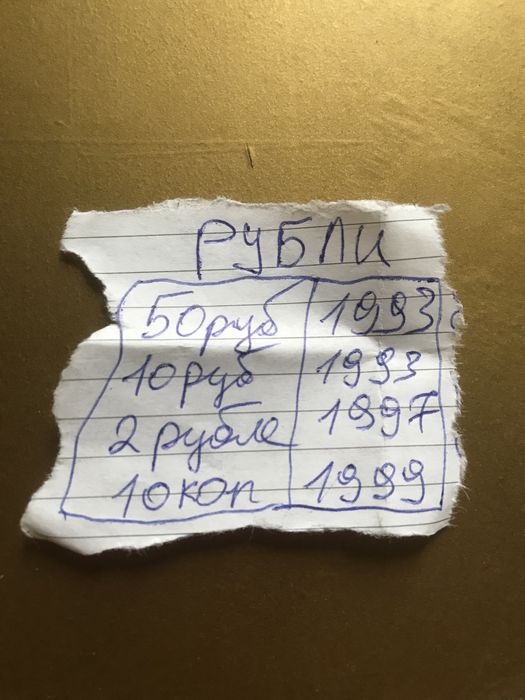 РУБЛИ
50руб 1993
10руб 1993
2 рубле 1997
10коп 1999